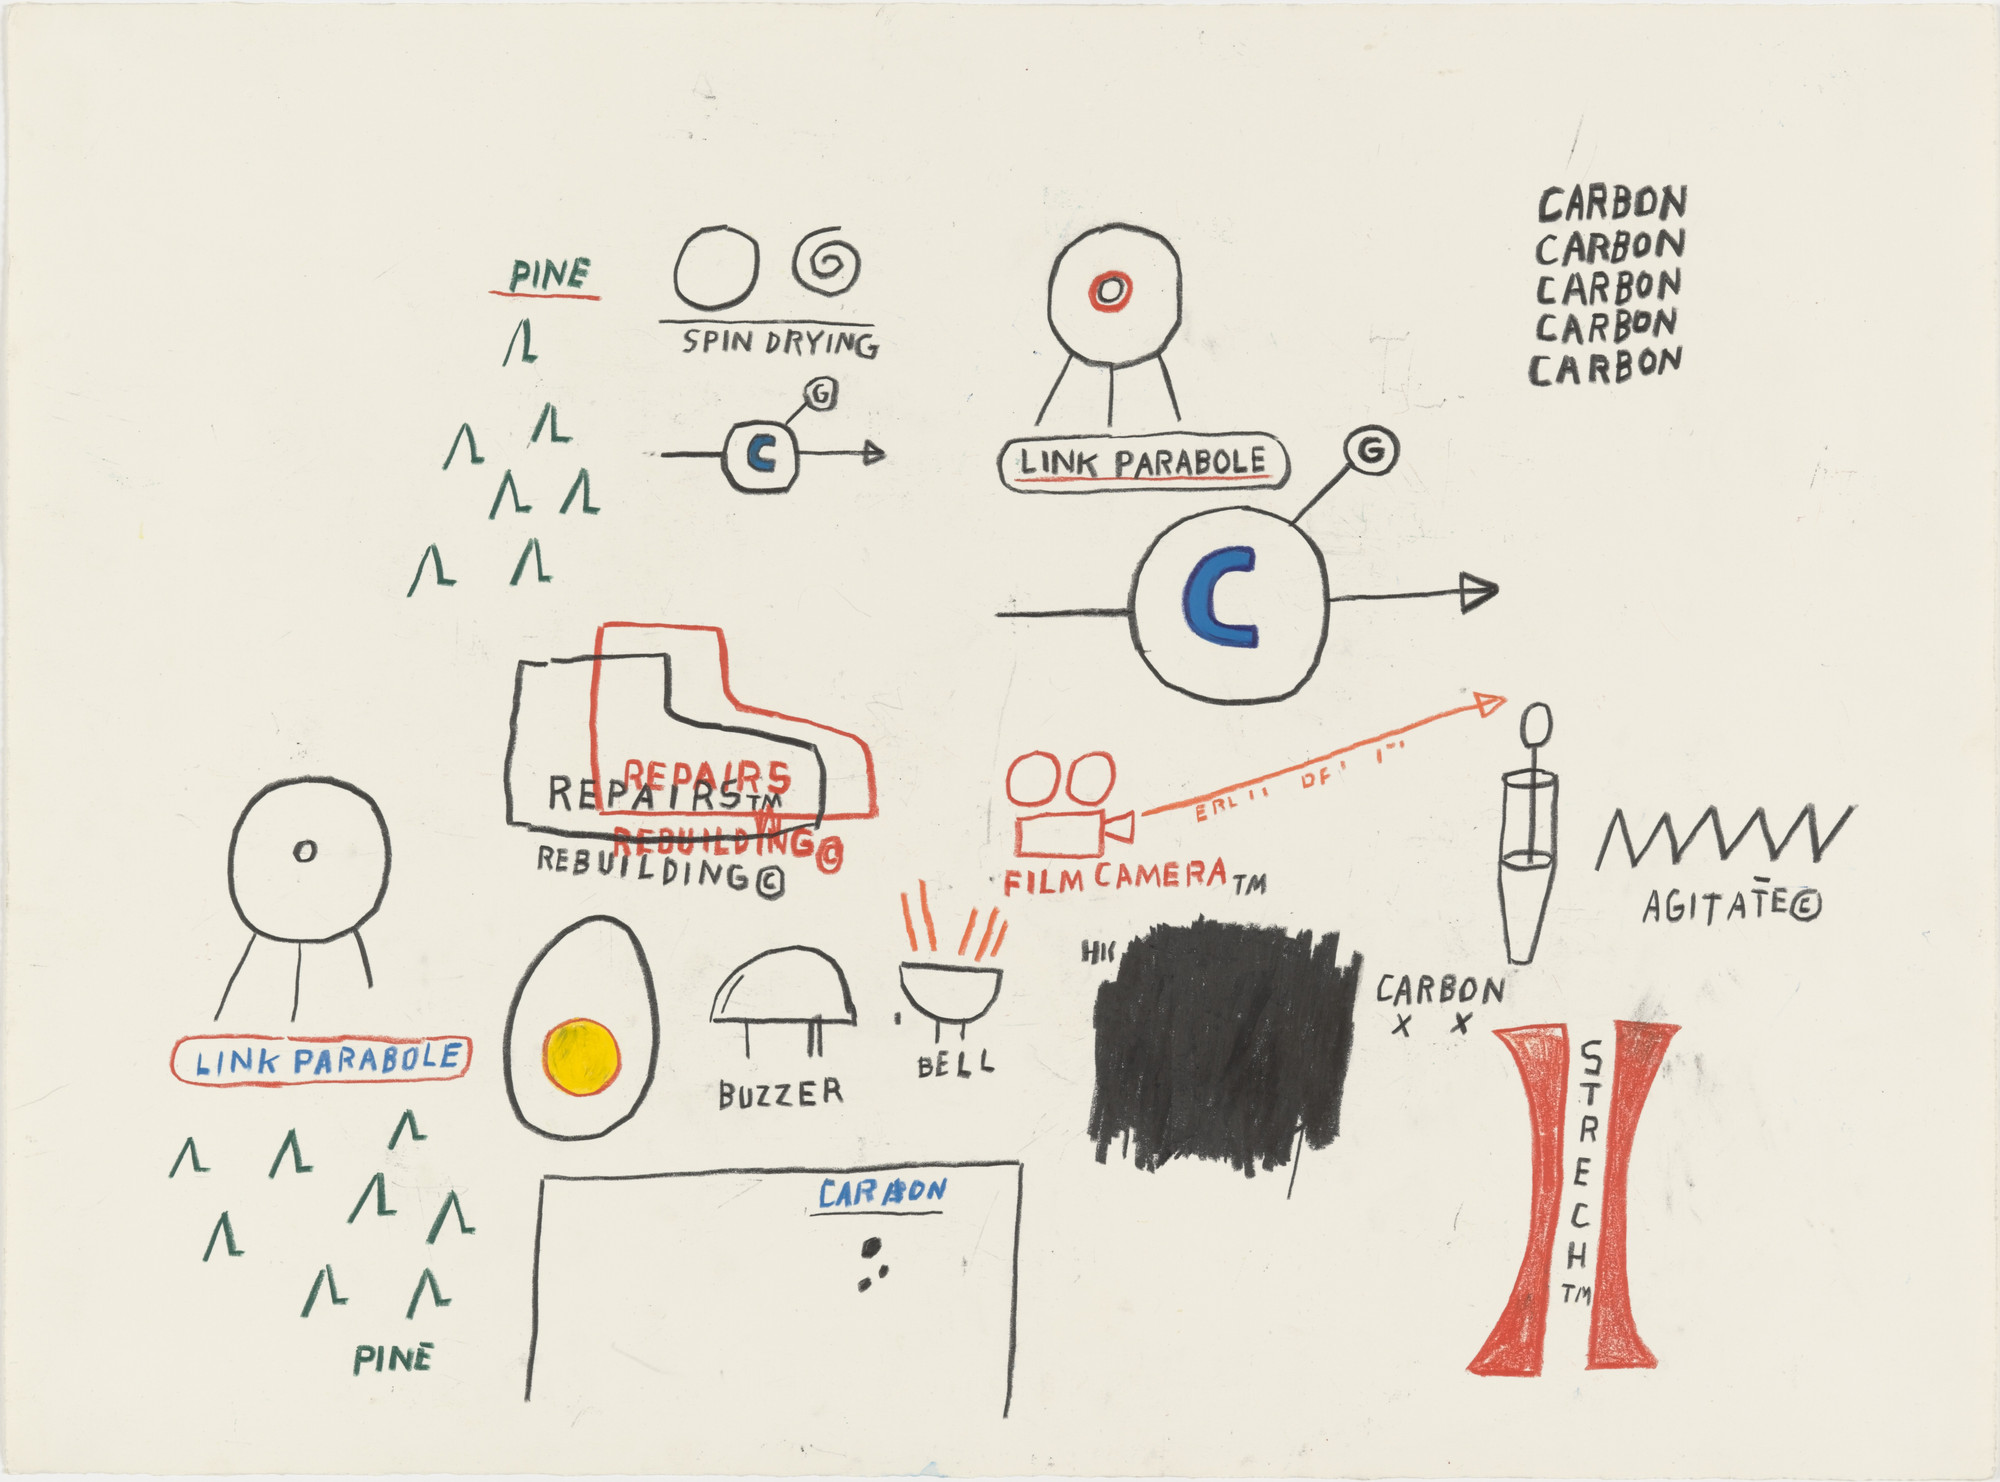 PINE
SPIN DRYING
G
C
LINK PARABOLE
CARBON
CARBON
CARBON
CARBON
CARBON
G
C
REPAIRS
REPAIRS™
REBUILDING©
REBUILDING©
FILM CAMERA™
AGITATE©
LINK PARABOLE
BUZZER
BELL
CARBON
X X
STRECH™
CARBON
PINE